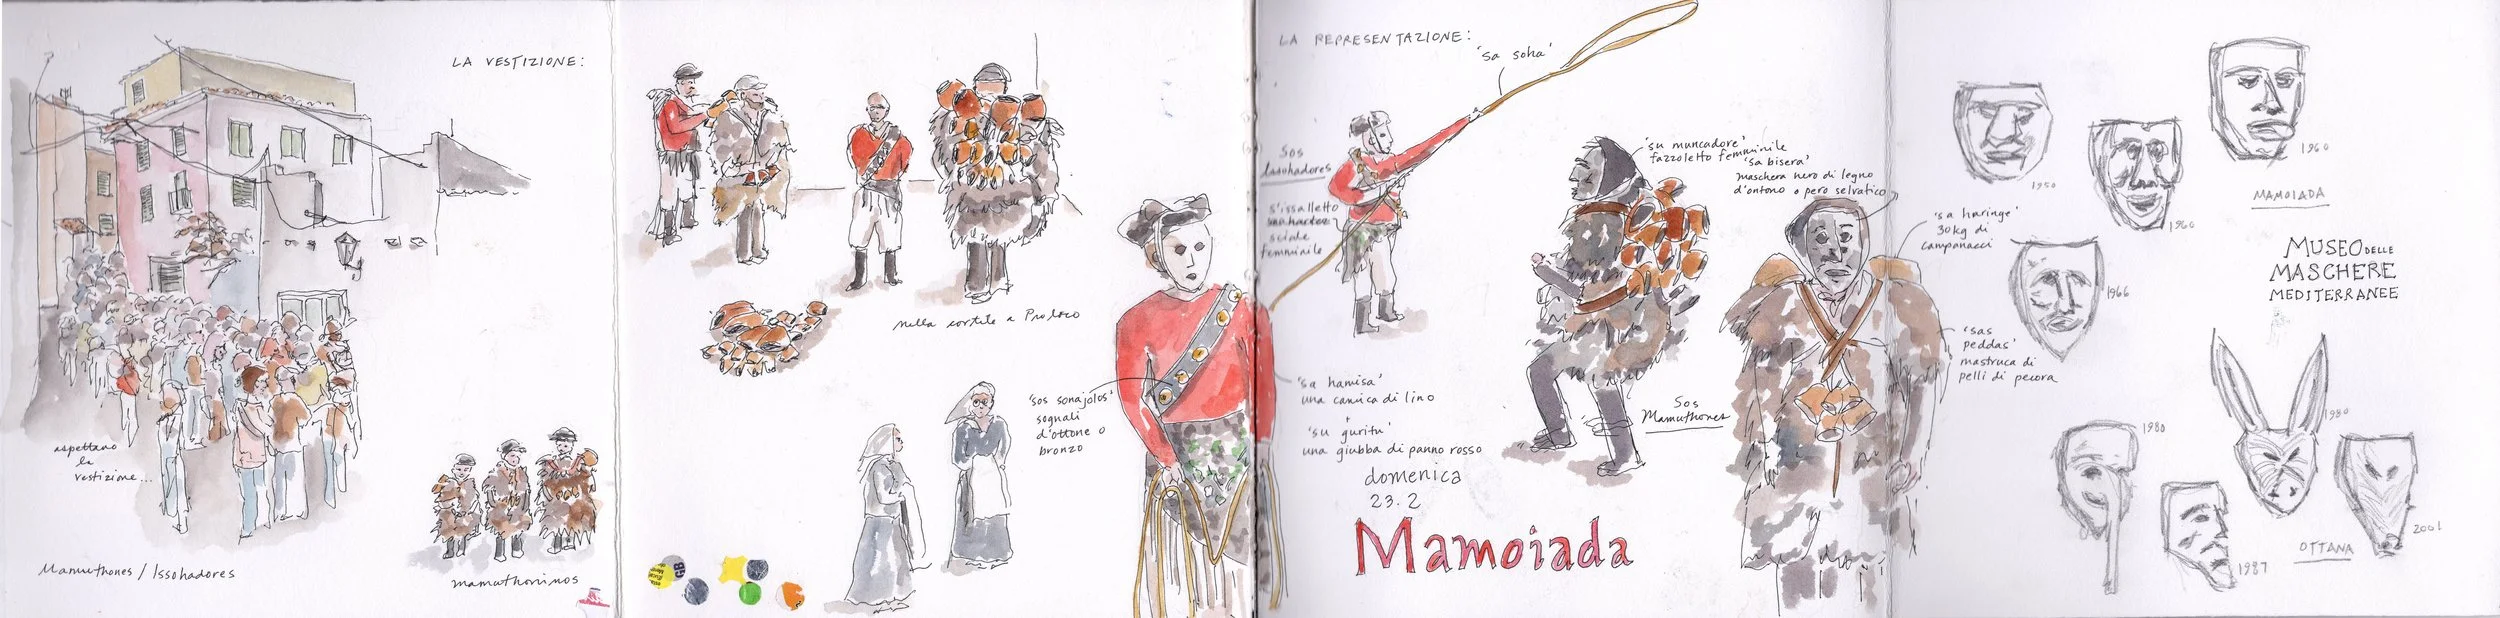 LA VESTIZIONE:
aspettano
la
vestizione...
Mamuthones / Issohadores
mamuthoninos
nella cortile a Proloco
'sos sonajolos'
sognali
d'ottone o
bronzo
LA REPRESENTAZIONE:
'sa soha'
Sos
Issohadores
s'issalletto
scialle
femminile
'sa hamisa'
una camica di lino
+
'su guritu'
una giubba di panno rosso
domenica
23.2
Mamoiada
'su muncadore'
fazzoletto femminile
'sa bisera'
maschera nero di legno
d'ontono o pero selvatico
Sos
Mamuthones
'sa haringe'
30kg di
campanacci
'sas
peddas'
mastruca di
pelli di pecora
1950
1960
1960
MAMOIADA
1966
MUSEO DELLE
MASCHERE
MEDITERRANEE
1980
1980
1987
2001
OTTANA